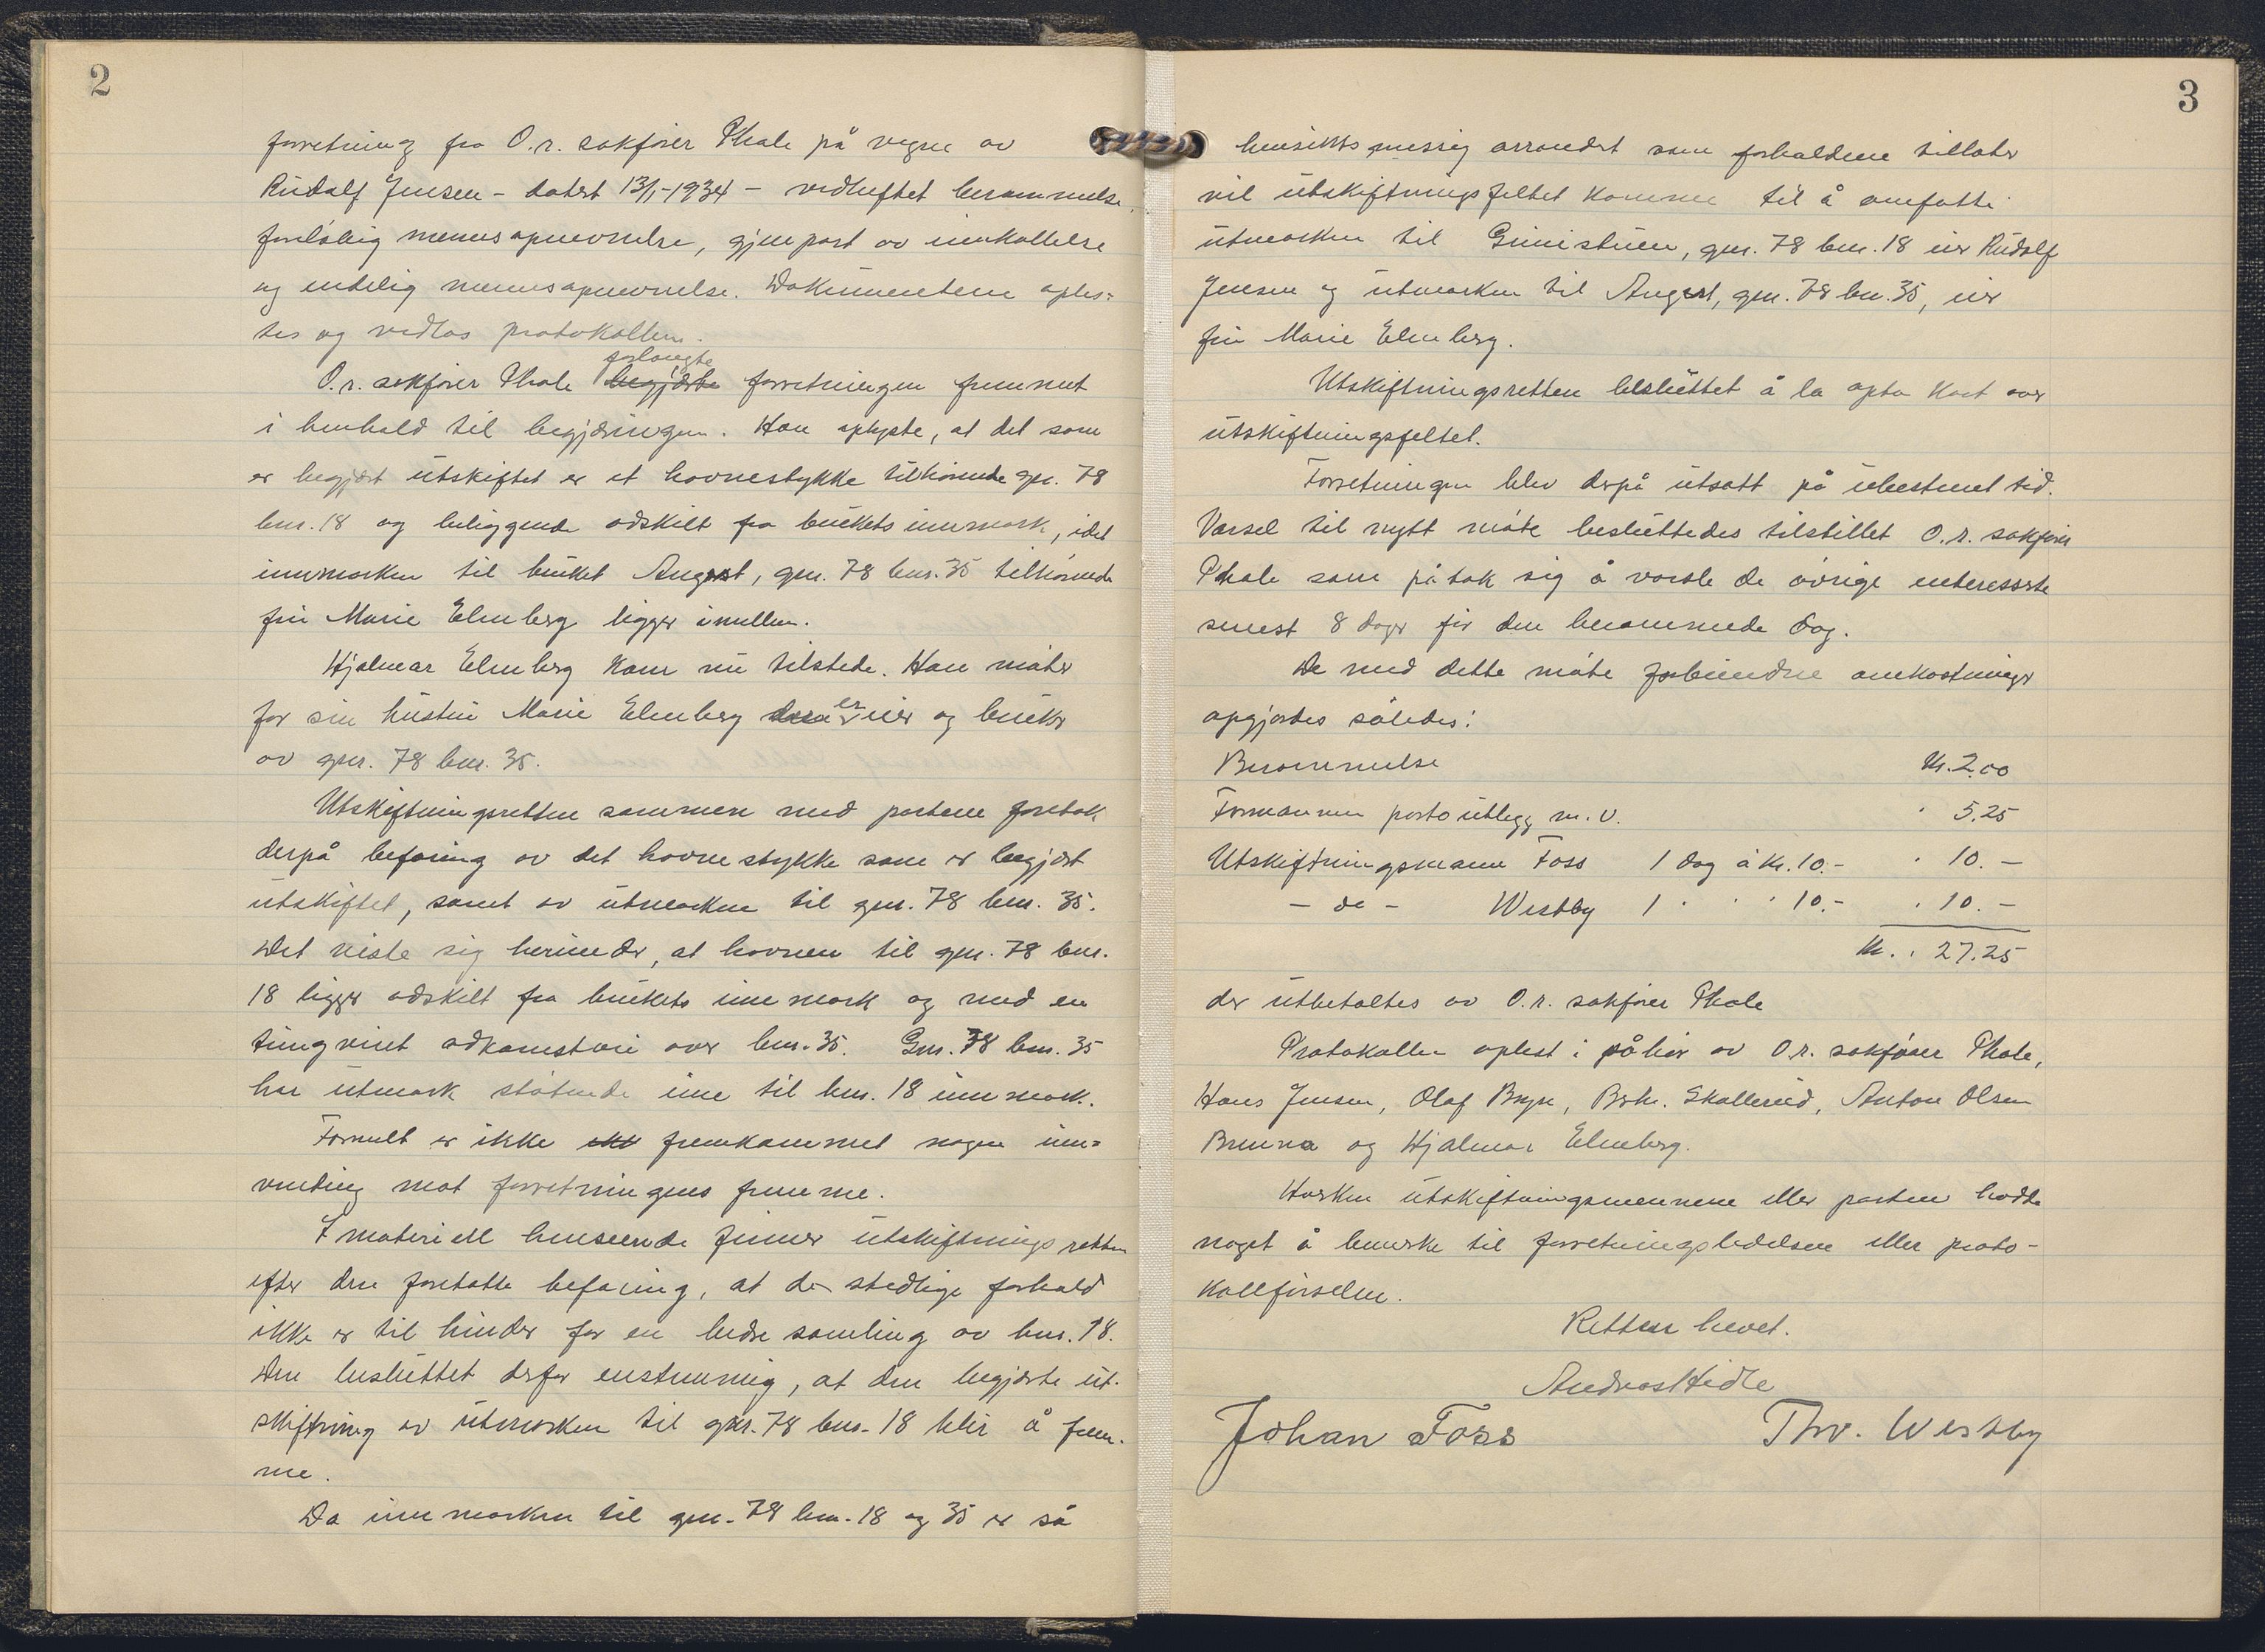 2
forretning fra O.r. sakfører Thale på vegne av
Rudolf Jensen - datert 13/1-1934 - vedheftet berammelse,
foreløbig mennsopnevnelse, gjenpart av innkallelse
og endelig mennsopnevnelse. Dokumentene oples-
tes og vedlas protokollen.
O.r. sakfører Thale begjærte forlangte forretningen fremmet
i henhold til begjæringen. Han oplyste, at det som
er begjært utskiftet er et havnestykke tilhørende gnr. 78
bnr. 18 og beliggende adskilt fra brukets innmark, idet
innmarken til bruket Angerst, gnr. 78 bnr. 35 tilhørende
fru Marie Elmberg ligger imellem.
Hjalmar Elmberg kom nu tilstede. Han møter
for sin hustru Marie Elmberg er eier og bruker
av gnr. 78 bnr. 35.
Utskiftningsretten sammen med partene foretok
derpå befaring av det havnestykke som er begjært
utskiftet, samt av utmarken til gnr. 78 bnr. 35.
Det viste sig herunder, at havnen til gnr. 78 bnr.
18 ligger adskilt fra brukets innmark og med en
tungvint adkomstvei over bnr. 35. Gnr. 78 bnr. 35
har utmark støtende inn til bnr. 18 innmark.
Formelt er ikke fremkommet nogen inn-
vending mot forretningens fremme.
I materiell henseende finner utskiftningsretten
efter den foretatte befaring, at de stedlige forhold
ikke er til hinder for en bedre samling av bnr. 18.
Den besluttet derfor enstemmig, at den begjærte ut-
skiftning av utmarken til gnr. 78 bnr. 18 blir å frem-
me.
Da innmarken til gnr. 78 bnr. 18 og 35 er så
3
hensiktsmessig arrondert som forholdene tillater
vil utskiftningsfeltet komme til å omfatte
utmarken til Grinistuen, gnr. 78 bnr. 18 eier Rudolf
Jensen og utmarken til Angerst, gnr. 78 bnr. 35, eier
fru Marie Elmberg.
Utskiftningsretten besluttet å la opta kart over
utskiftningsfeltet.
Forretningen blev derpå utsatt på ubestemt tid.
Varsel til nytt møte besluttedes tilstillet O.r. sakfører
Thale som påtok sig å varsle de øvrige interesserte
senest 8 dager før den berammede dag.
De med dette møte forbundne omkostninger
opgjordes således:
Berammelse Kr. 2,00
Formannen porto utlegg m.v. " 5.25
Utskiftningsmann Foss 1 dag à Kr. 10.- " 10.-
- do - Westby 1 " " " 10.- " 10.-
Kr. " 27.25
der utbetaltes av O.r. sakfører Thale
Protokollen oplest i påhør av O.r. sakfører Thale,
Hans Jensen, Olaf Bryn, Skallerud, Anton Olsen
Brenna og Hjalmar Elmberg.
Hverken utskiftningsmennene eller parten hadde
noget å bemerke til forretningsledelsen eller proto-
kollførselen.
Retten hevet.
Andreas Hidle
Johan Foss Thv. Westby